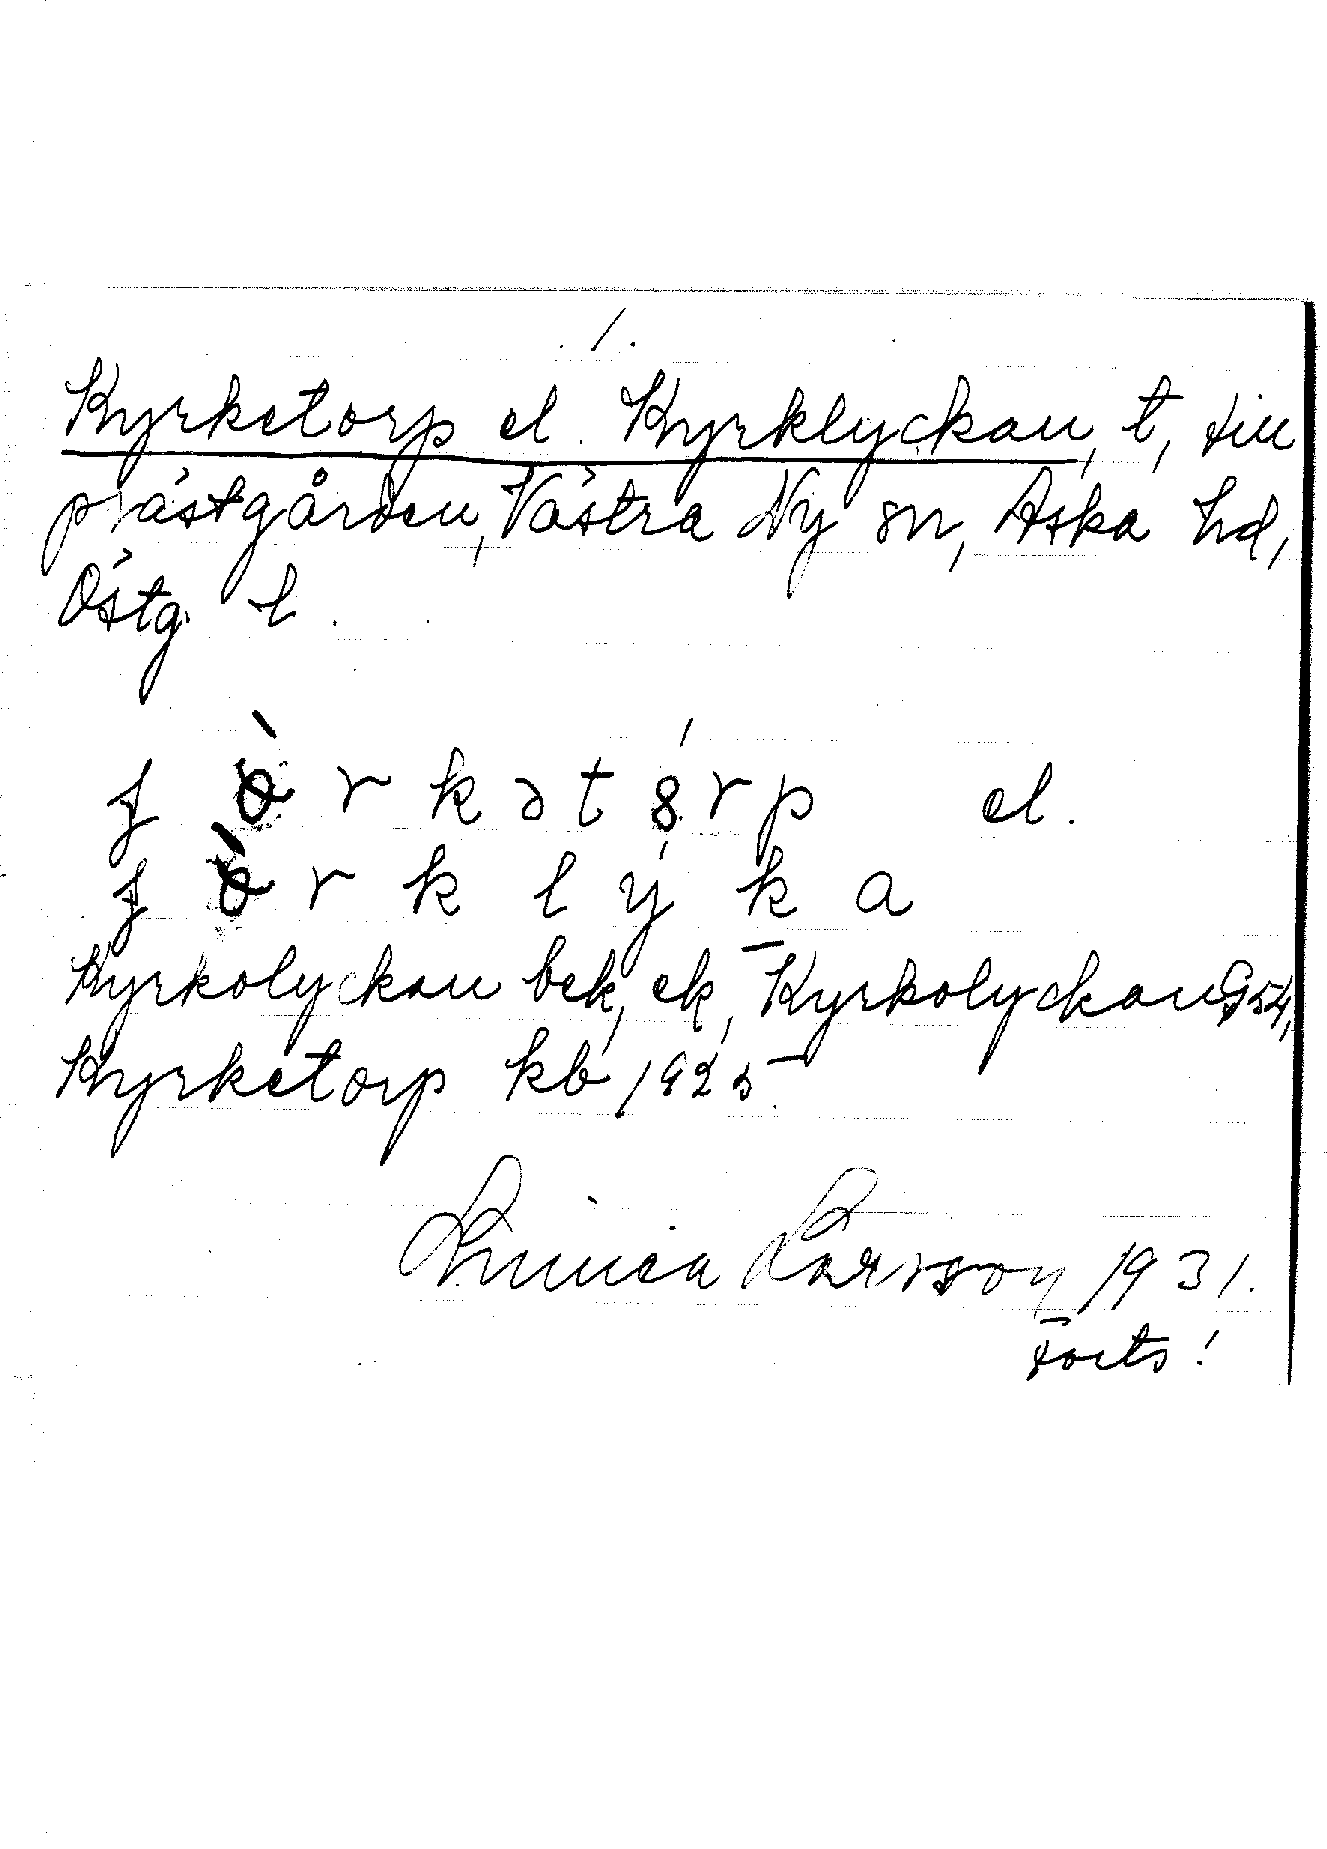 1.
Kyrketorp el. Kyrklyckan, t, till
prästgården, Västra Ny sn, Aska hd,
Östg. l.
ʄ ɵ̀ r k ə t ȣ́ r p el.
ʄ ɵ̀ r k l ý k a
Kyrkolyckan bek, ek, Kyrkolyckan G 54,
Kyrketorp kb 1925
Linnea Larsson 1931.
Forts!